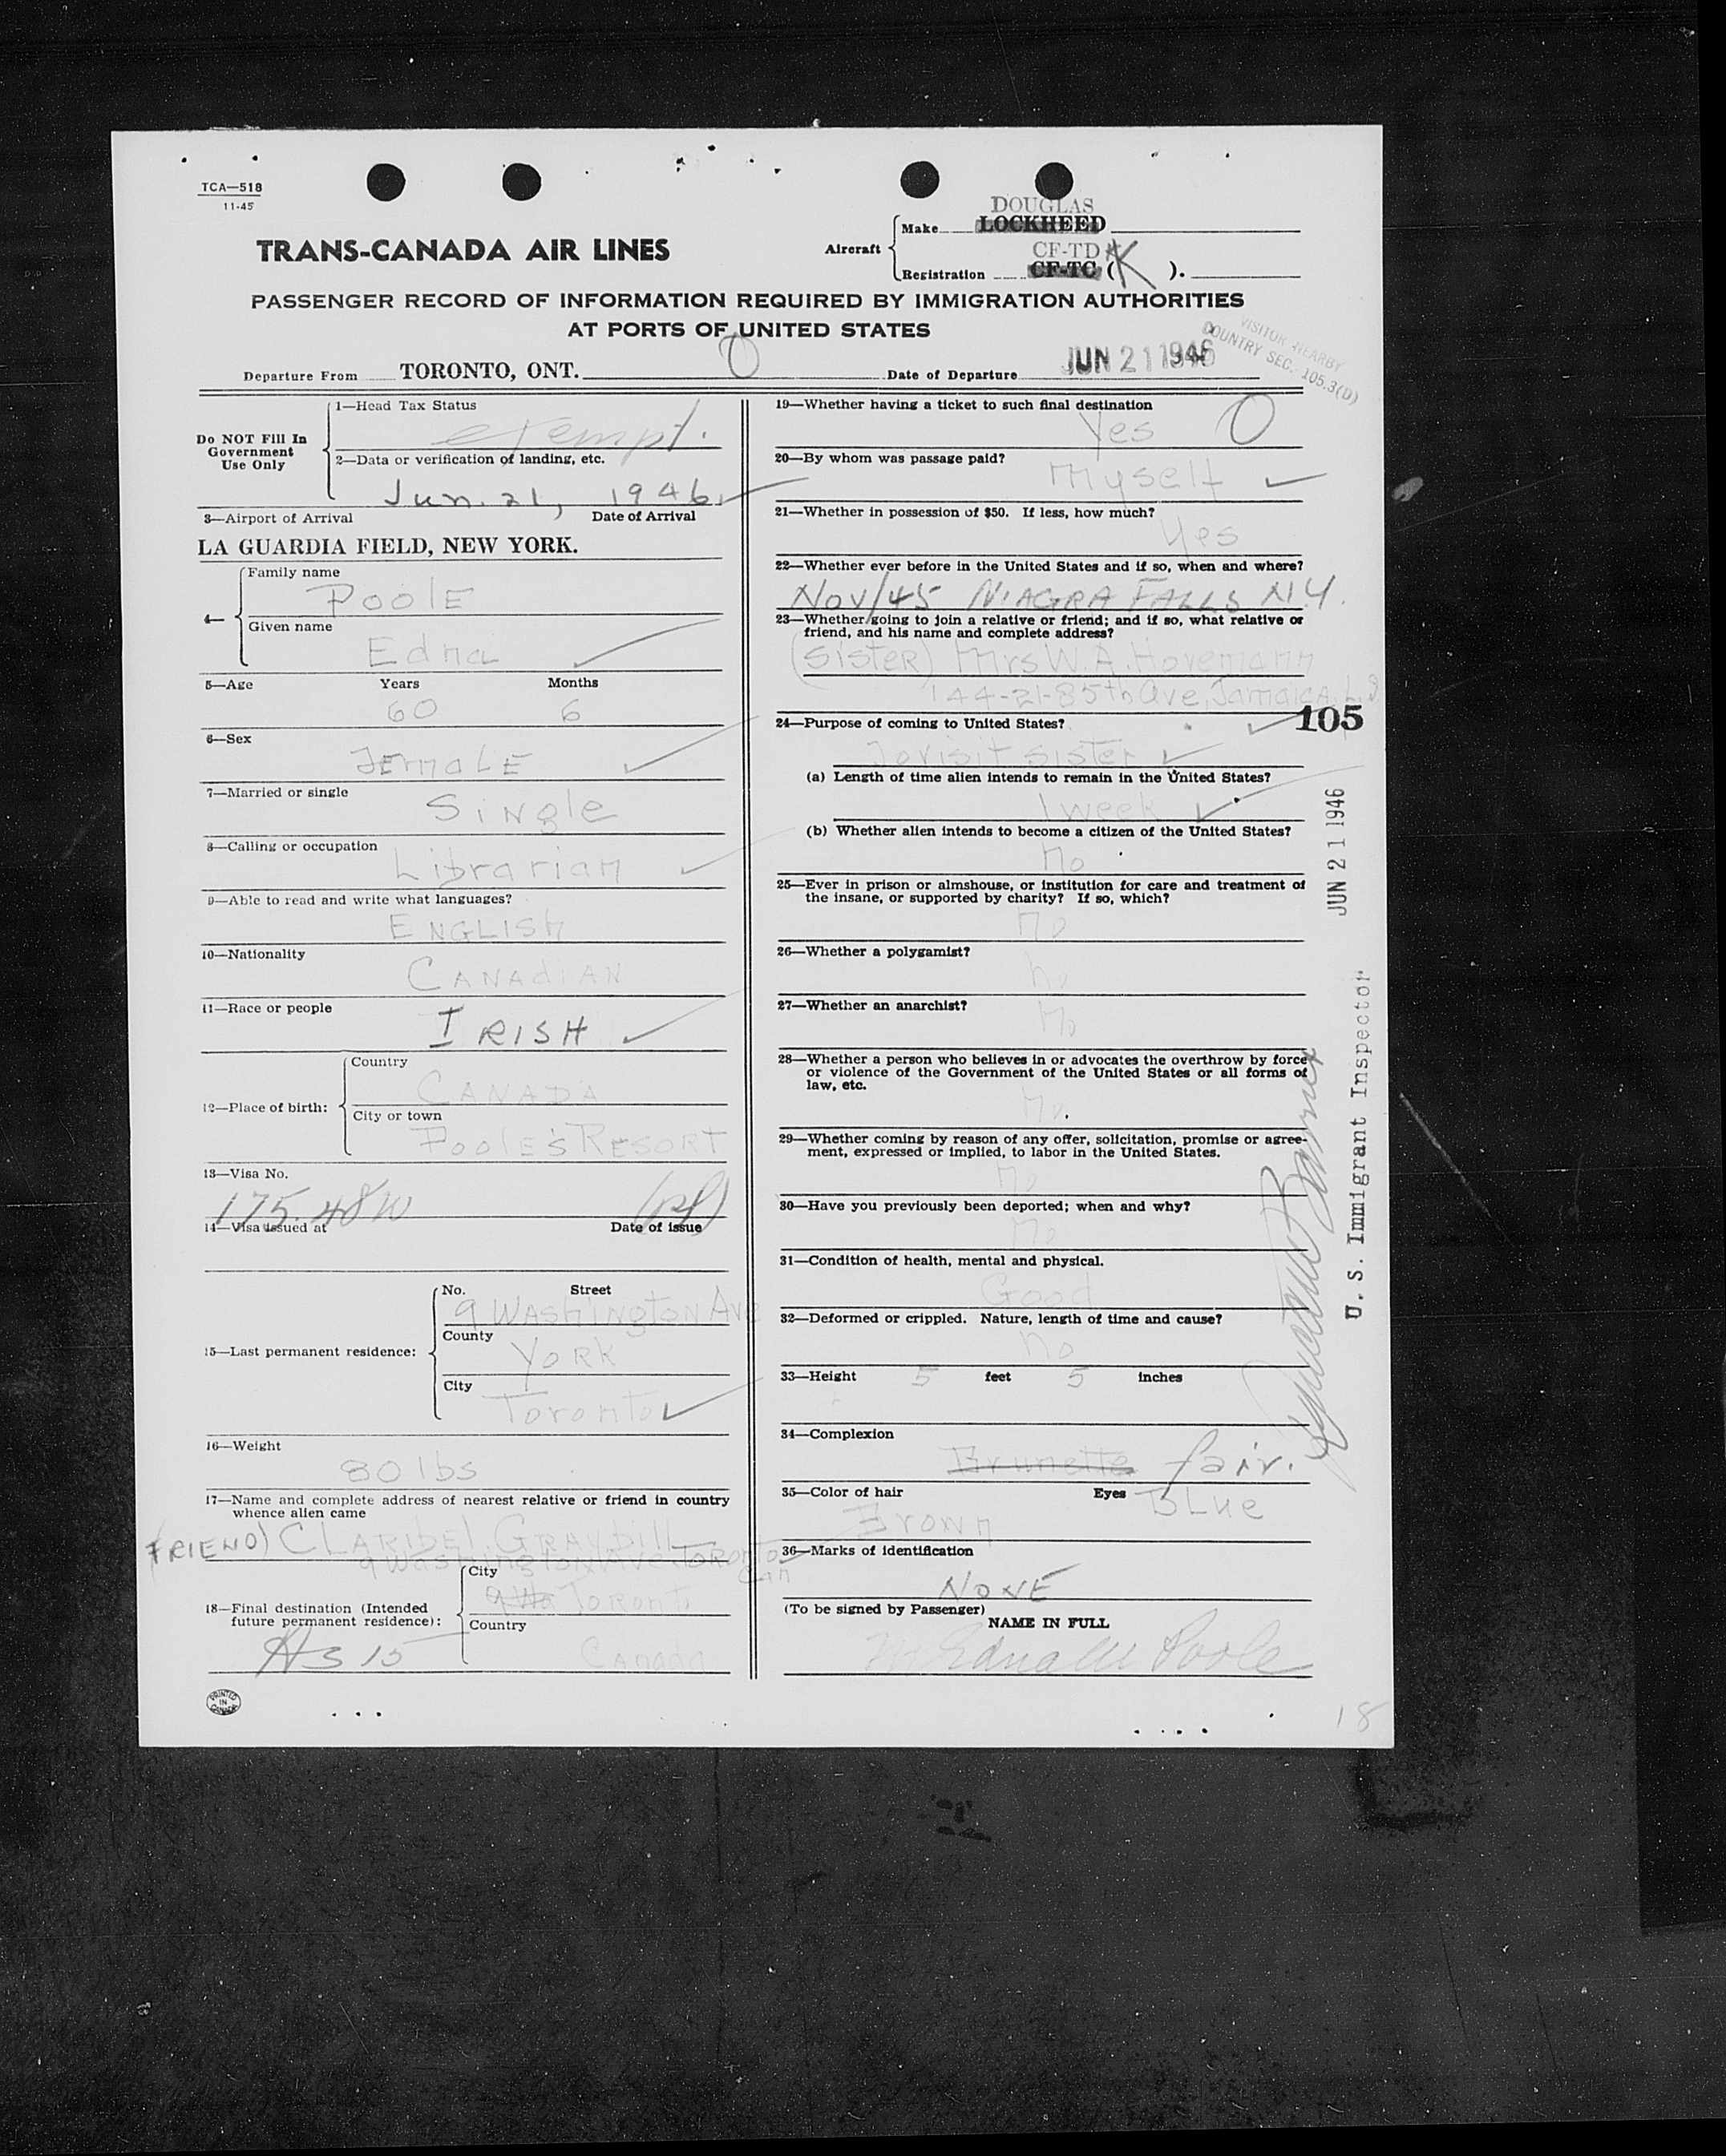 TCA—518
11-45
DOUGLAS
Make LOCKHEED
TRANS-CANADA AIR LINES
Aircraft
CF-TD
Registration CF-TC (K ).
PASSENGER RECORD OF INFORMATION REQUIRED BY IMMIGRATION AUTHORITIES
AT PORTS OF UNITED STATES
VISITOR NEARBY
COUNTRY SEC. 105.3(D)
Departure From TORONTO, ONT. O Date of Departure JUN 21 1946
Do NOT Fill In
Government
Use Only
1—Head Tax Status
exempt.
2—Data or verification of landing, etc.
Jun. 21, 1946
3—Airport of Arrival Date of Arrival
LA GUARDIA FIELD, NEW YORK.
4— Family name
Poole
Given name
Edna
5—Age Years Months
60 6
6—Sex
Female
7—Married or single
Single
8—Calling or occupation
Librarian
9—Able to read and write what languages?
ENGLISH
10—Nationality
CANADIAN
11—Race or people
IRISH
12—Place of birth:
Country
CANADA
City or town
POOLE'S RESORT
13—Visa No.
175.48W
14—Visa issued at Date of issue
15—Last permanent residence:
No. Street
9 Washington Ave
County
York
City
Toronto
16—Weight
80 lbs
17—Name and complete address of nearest relative or friend in country
whence alien came
FRIEND) CLARIBEL GRAYBILL
9 Washington Ave Toronto
Can
18—Final destination (Intended
future permanent residence):
City
Toronto
Country
Canada
As 15
PRINTED
IN
CANADA
19—Whether having a ticket to such final destination
Yes O
20—By whom was passage paid?
Myself
21—Whether in possession of $50. If less, how much?
Yes
22—Whether ever before in the United States and if so, when and where?
Nov/45 NIAGRA FALLS N.Y.
23—Whether going to join a relative or friend; and if so, what relative or
friend, and his name and complete address?
(SISTER) Mrs W.A. Hovemann
144-21-85th Ave, Jamaica, L.I
24—Purpose of coming to United States?
105
To visit sister
(a) Length of time alien intends to remain in the United States?
1 week
(b) Whether alien intends to become a citizen of the United States?
No
25—Ever in prison or almshouse, or institution for care and treatment of
the insane, or supported by charity? If so, which?
No
26—Whether a polygamist?
No
27—Whether an anarchist?
No
28—Whether a person who believes in or advocates the overthrow by force
or violence of the Government of the United States or all forms of
law, etc.
No.
29—Whether coming by reason of any offer, solicitation, promise or agree-
ment, expressed or implied, to labor in the United States.
No
30—Have you previously been deported; when and why?
No
31—Condition of health, mental and physical.
Good
32—Deformed or crippled. Nature, length of time and cause?
No
33—Height 5 feet 5 inches
34—Complexion
Brunette fair.
35—Color of hair Eyes
Brown BLue
36—Marks of identification
NONE
(To be signed by Passenger)
NAME IN FULL
Edna M Poole
JUN 21 1946
U. S. Immigrant Inspector
18